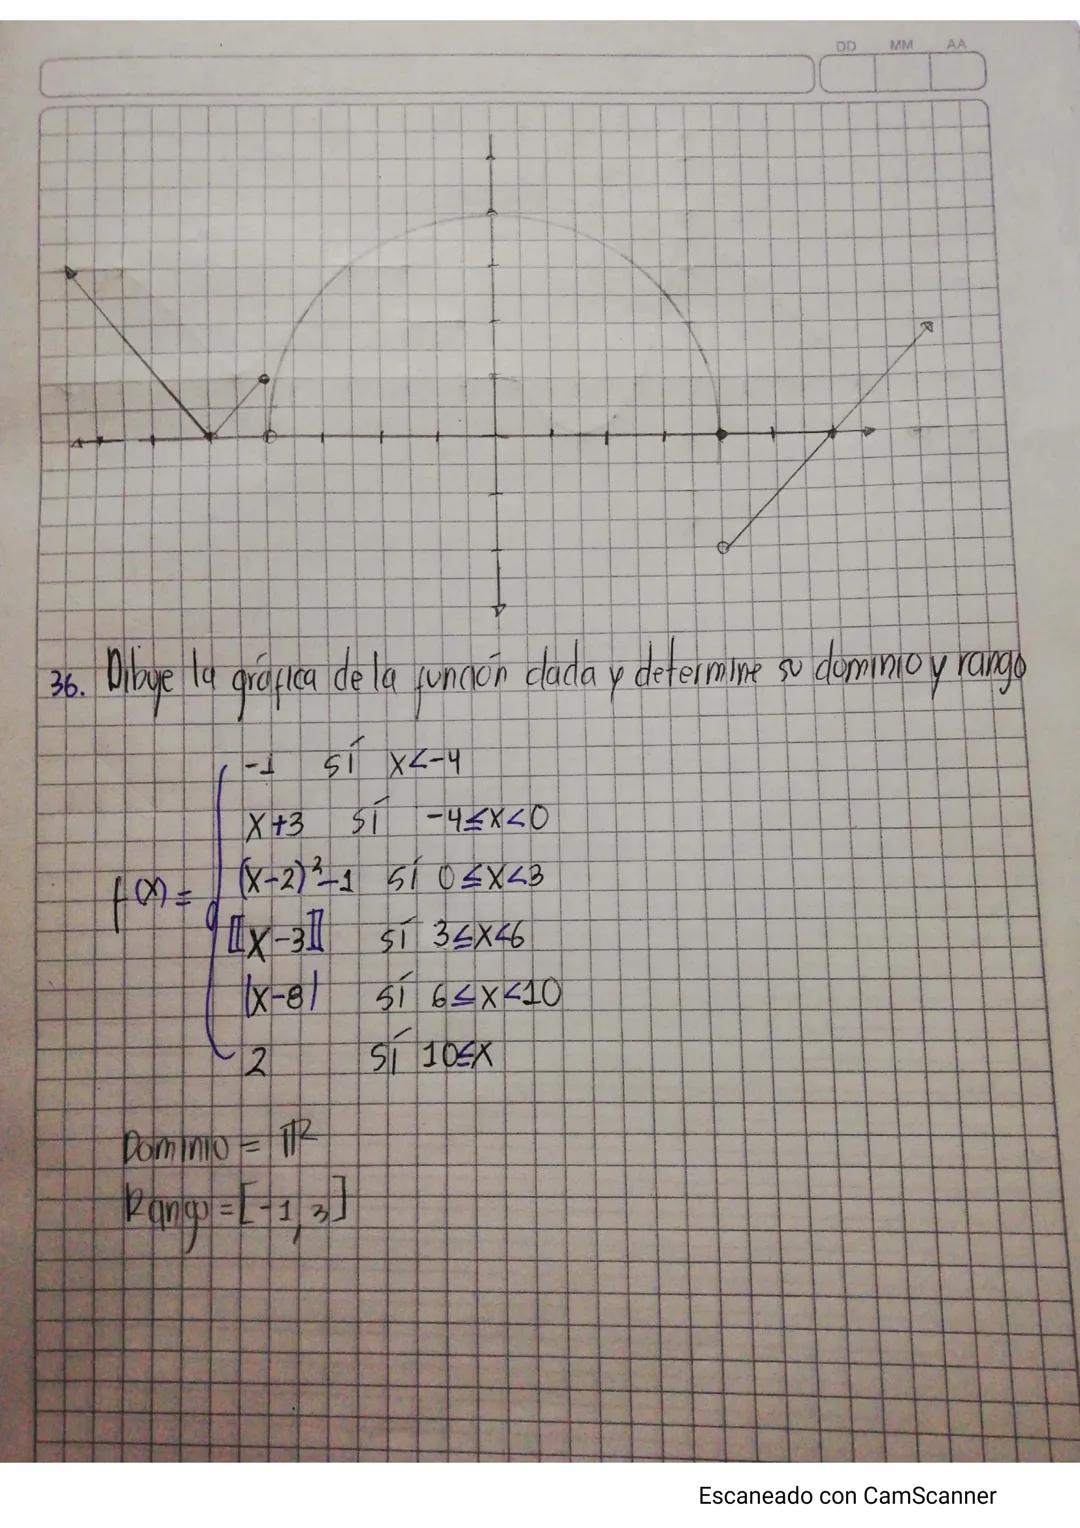 DD MM AA
36. Dibuje la gráfica de la función dada y determine su dominio y rango
-1 sí x<-4
x+3 sí -4≤x<0
f(x)= (x-2)²-1 sí 0≤x<3
⟦x-3⟧ sí 3≤x<6
|x-8| sí 6≤x<10
2 sí 10≤x
Dominio = ℝ
Rango = [-1, 3]
Escaneado con CamScanner